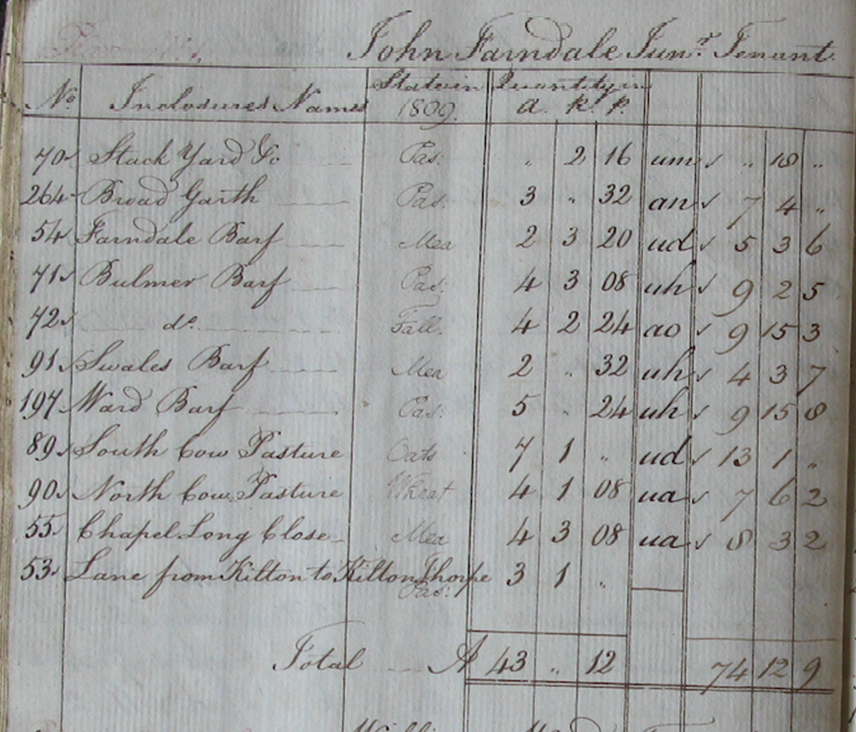 John Farndale Junr. Tenant
No. Inclosures Names State in 1809. Quantity in a. R. p.
70 Stack Yard &c Pas. " 2 16 um " 18 "
264 Broad Garth Pas. 3 " 32 an 7 4 "
54 Farndale Barf Mea 2 3 20 ud 5 3 6
71 Bulmer Barf Pas. 4 3 08 uh 9 2 5
72 do. Fall. 4 2 24 ao 9 15 3
91 Swales Barf Mea 2 " 32 uh 4 3 7
197 Ward Barf Pas. 5 " 24 uh 9 15 8
89 South Cow Pasture Oats 7 1 " ud 13 1 "
90 North Cow Pasture Wheat 4 1 08 ua 7 6 2
55 Chapel Long Close Mea 4 3 08 ua 8 3 2
53 Lane from Kilton to Kilton Thorpe Pas. 3 1 "
Total A 43 " 12 74 12 9